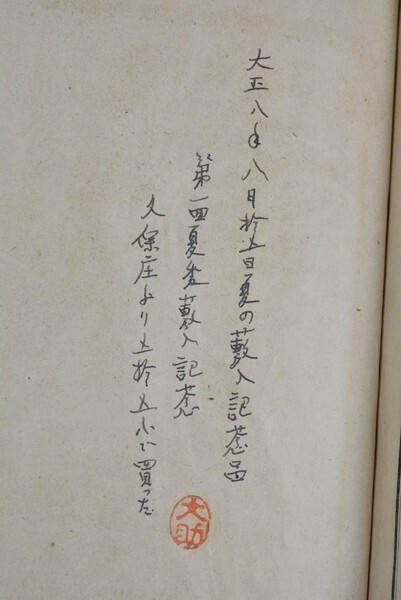 大正八年八月拾五日夏の藪入記念品
第一回夏季藪入記念
久保庄より五拾五小で買った
文助